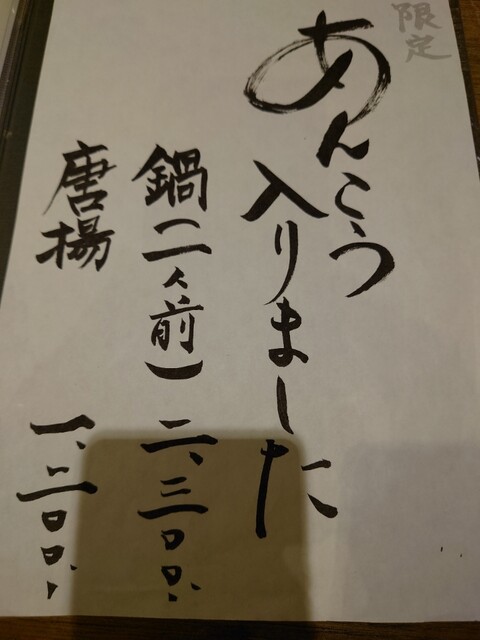 限定
あんこう
入りました
鍋(二人前) 二、三〇〇.-
唐揚 一、二〇〇.-